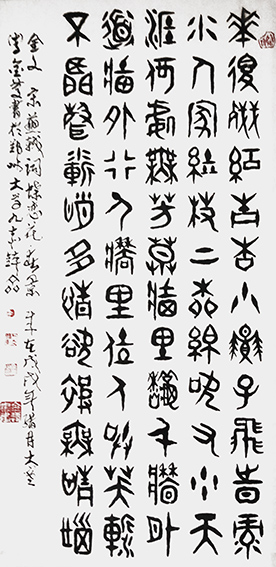 花褪殘紅青杏小燕子飛時綠
水人家繞枝上柳綿吹又少天
涯何處無芳草牆里秋千牆外
道牆外行人牆里佳人笑笑漸
不聞聲漸悄多情卻被無情惱
金文 宋蘇軾詞蝶戀花春景 戊戌年
書於鄭州大學